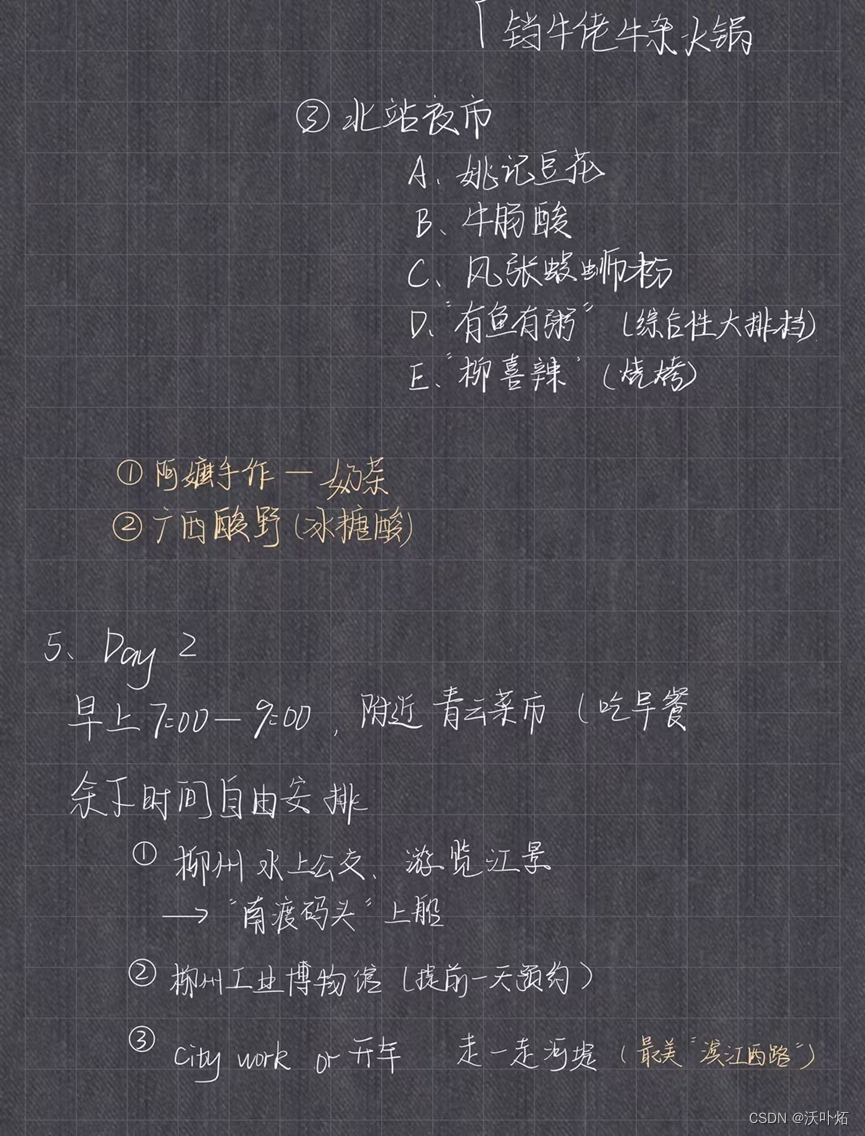 「铛牛佬牛杂火锅
③ 北站夜市
A、姚记豆花
B、牛肠酸
C、凡张螺蛳粉
D、“有鱼有粥”（综合性大排档）
E、“柳喜辣”（烧烤）
① 阿嬷手作 — 奶茶
② 广西酸野（冰糖酸）
5、Day 2
早上 7:00 — 9:00，附近 青云菜市（吃早餐
余下时间自由安排
① 柳州水上公交、游览江景
→ “南渡码头”上船
② 柳州工业博物馆（提前一天预约）
③ city work or 开车 走一走河堤（最美“滨江西路”）
CSDN @沃卟炻